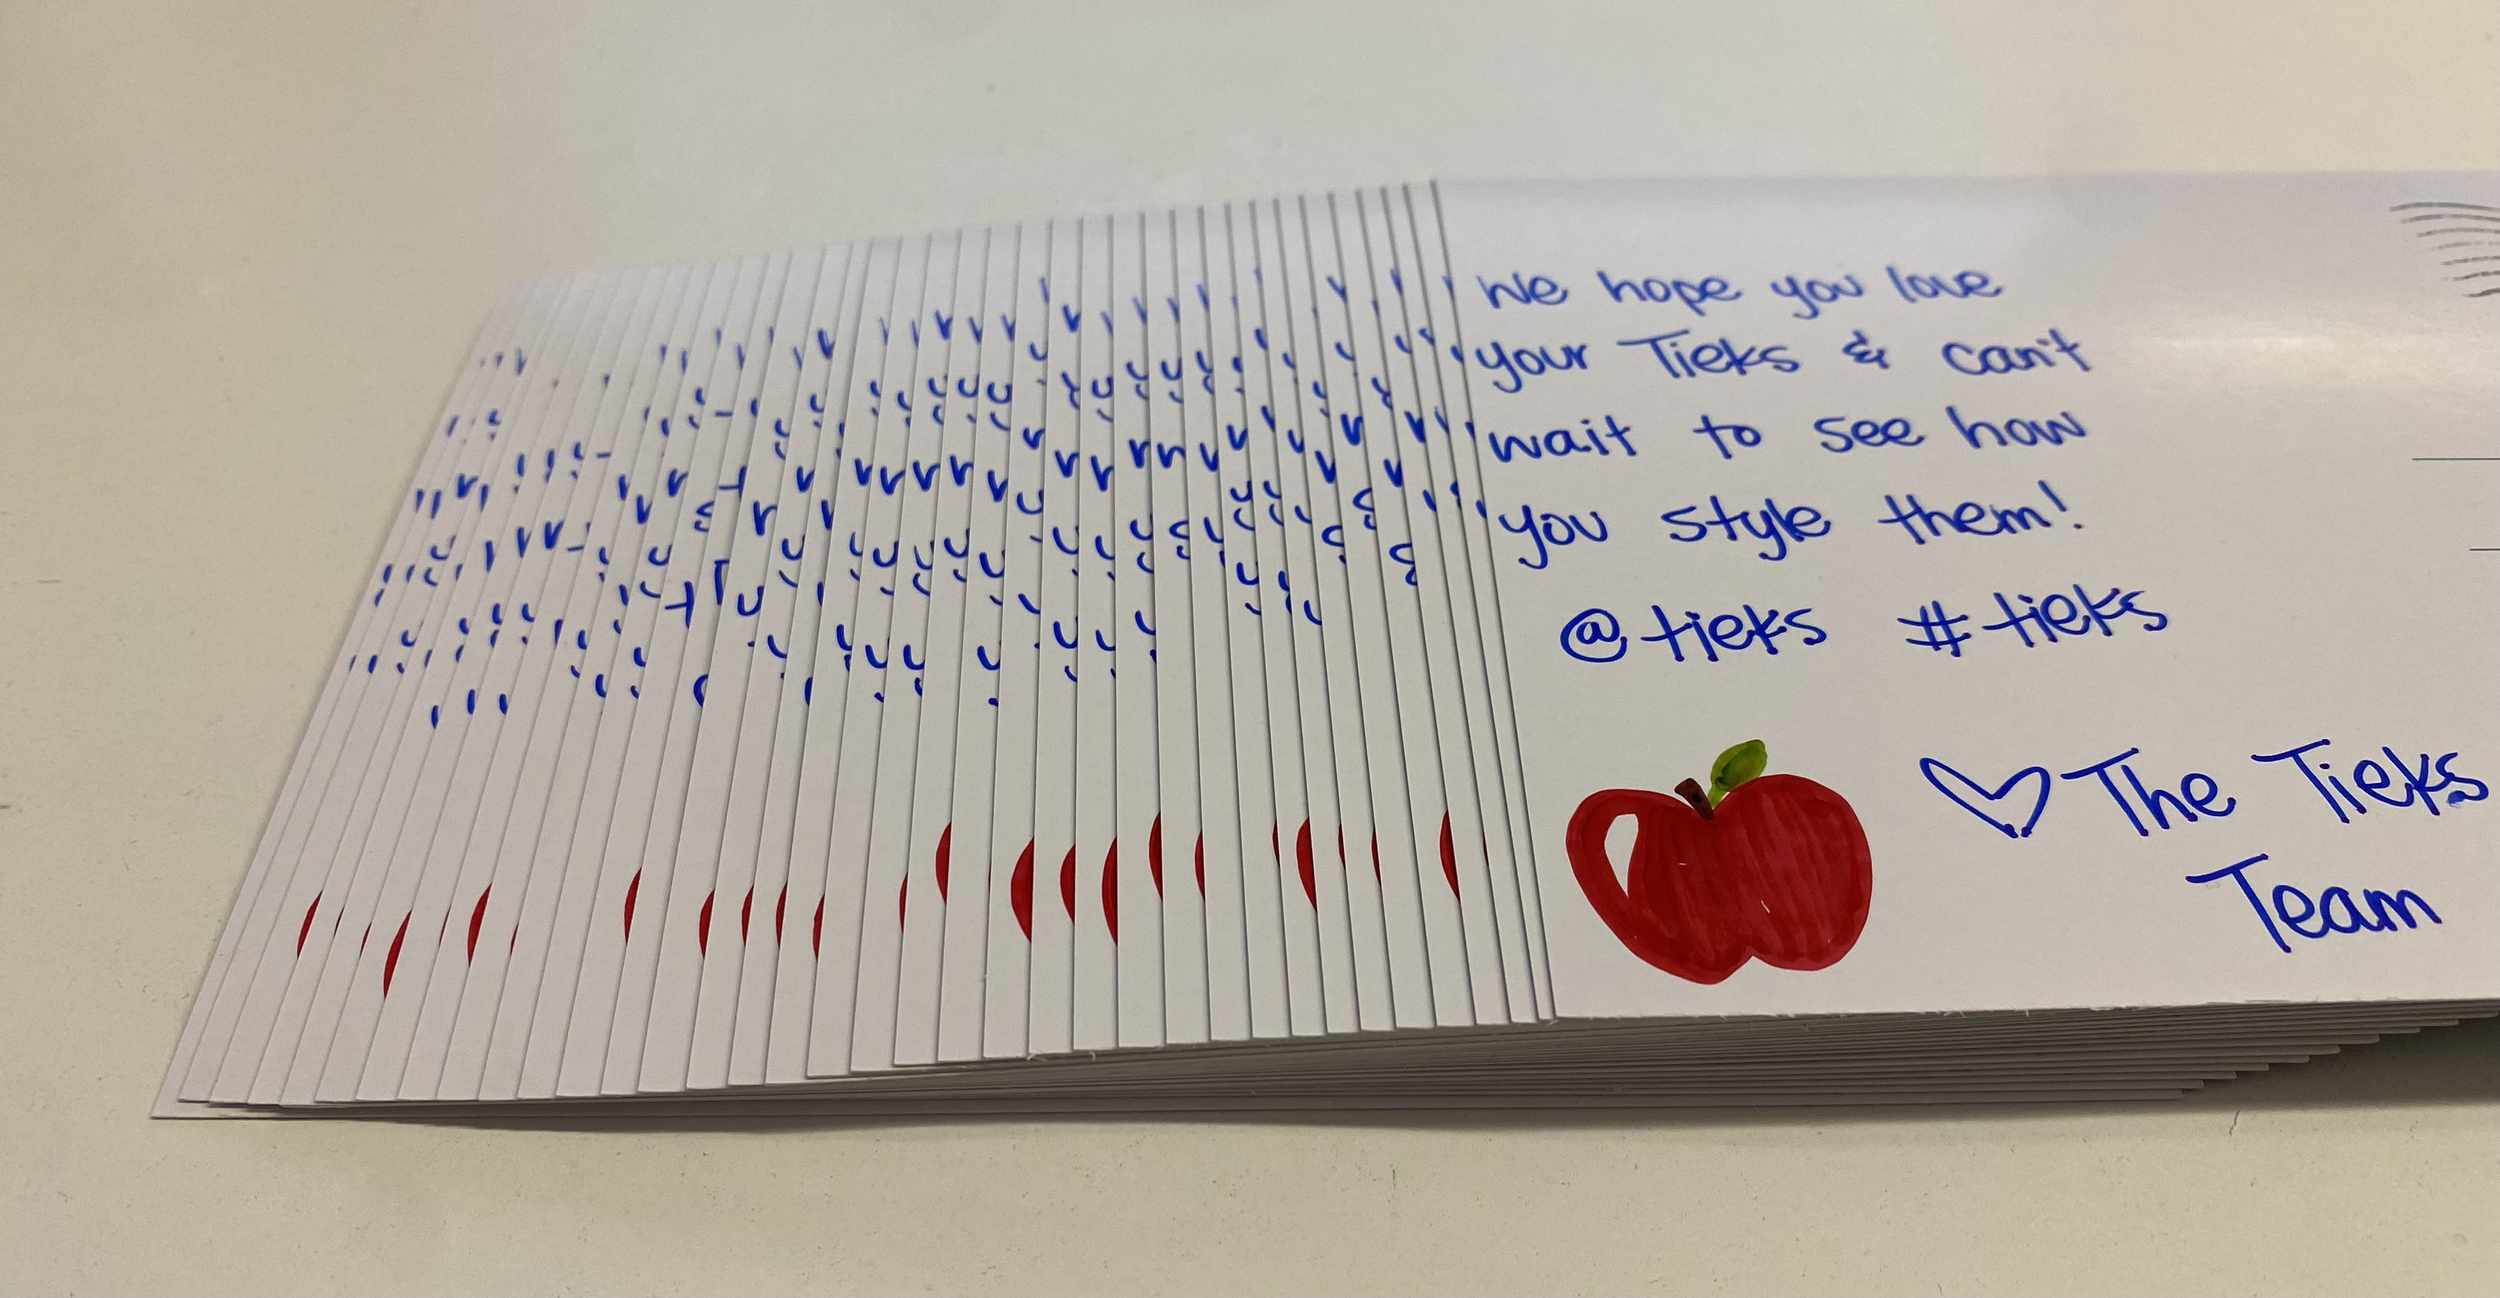 We hope you love
your Tieks & can't
wait to see how
you style them!
@tieks #tieks
♡ The Tieks
Team